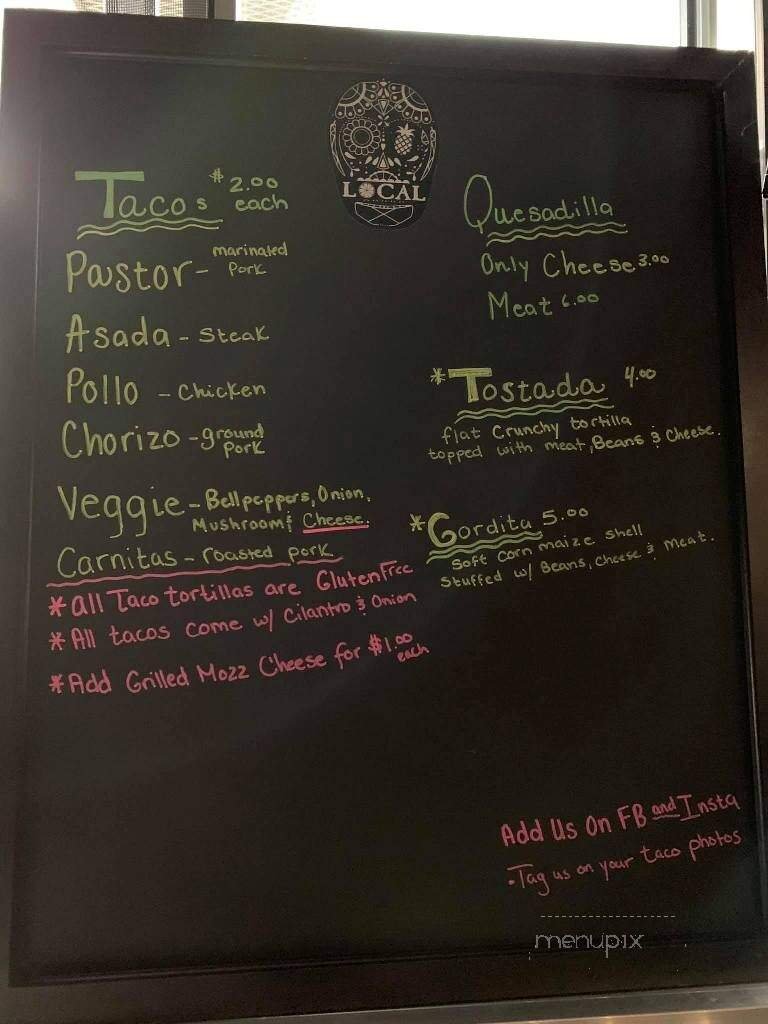 LOCAL
Tacos $2.00 each
Pastor - marinated Pork
Asada - Steak
Pollo - Chicken
Chorizo - ground Pork
Veggie - Bell peppers, Onion,
Mushroom & Cheese.
Carnitas - roasted pork
*All Taco tortillas are Gluten Free
*All tacos come w/ Cilantro & Onion
*Add Grilled Mozz Cheese for $1.00 each
Quesadilla
Only Cheese 3.00
Meat 6.00
*Tostada 4.00
flat Crunchy tortilla
topped with meat, Beans & Cheese.
*Gordita 5.00
Soft Corn maize shell
Stuffed w/ Beans, Cheese & Meat.
Add Us On FB and Insta
•Tag us on your taco photos
menupix